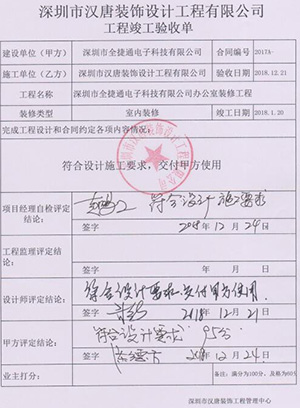 深圳市汉唐装饰设计工程有限公司
工程竣工验收单
建设单位（甲方） 深圳市全捷通电子科技有限公司 合同编号 2017A-
施工单位（乙方） 深圳市汉唐装饰设计工程有限公司 验收日期 2018.12.21
工程名称 深圳市全捷通电子科技有限公司办公室装修工程
装修类型 室内装修 竣工日期 2018.1.20
完成工程设计和合同约定各项内容情况：
符合设计施工要求，交付甲方使用
项目经理自检评定结论： 符合设计施工要求
签字 2018年12月24日
工程监理评定结论：
签字 年 月 日
设计师评定结论： 符合设计要求交付甲方使用.
签字 2018年12月21日
甲方评定结论： 符合设计要求 95分
签字 2018年12月24日
业主打分： 备注：满分为100分，及格为60%
深圳市汉唐装饰工程管理中心